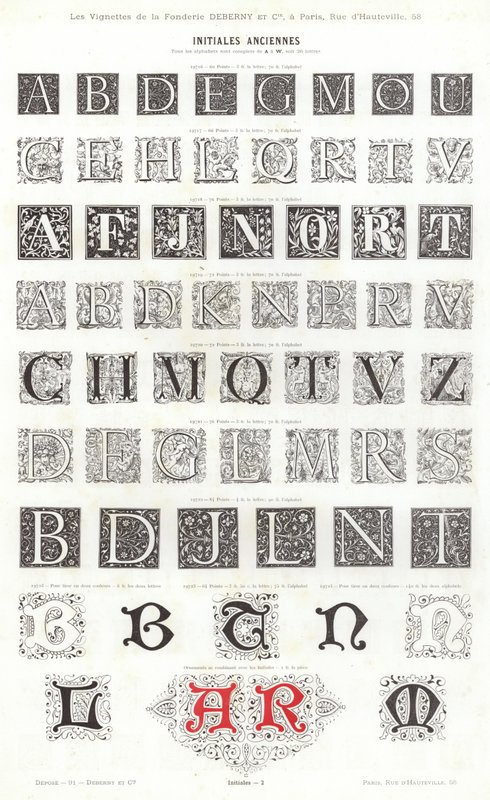 Les Vignettes de la Fonderie DEBERNY ET Cie, à Paris, Rue d'Hauteville, 58
INITIALES ANCIENNES
Tous les alphabets sont complets de A à W, soit 26 lettres
19716 — 60 Points — 3 fr. la lettre; 70 fr. l'alphabet
A B D E G M O U
19717 — 66 Points — 3 fr. la lettre; 70 fr. l'alphabet
C E H L Q R T V
3 fr. la lettre; 70 fr. l'alphabet
A F J N O R T
19719 — 72 Points — 3 fr. la lettre; 70 fr. l'alphabet
A B D K N P R V
19720 — 72 Points — 3 fr. la lettre; 70 fr. l'alphabet
C H M Q T V Z
3 fr. la lettre; 70 fr. l'alphabet
D F G L M R S
84 Points — 4 fr. la lettre; 90 fr. l'alphabet
B D J L N T
Pour tirer en deux couleurs — les deux lettres
la lettre; l'alphabet
Pour tirer en deux couleurs — les deux alphabets
B B T N N
Ornements se combinant avec les Initiales — la pièce
L AR M
DÉPOSÉ — 91 — DEBERNY ET Cie
Initiales — 2
PARIS, RUE D'HAUTEVILLE, 58